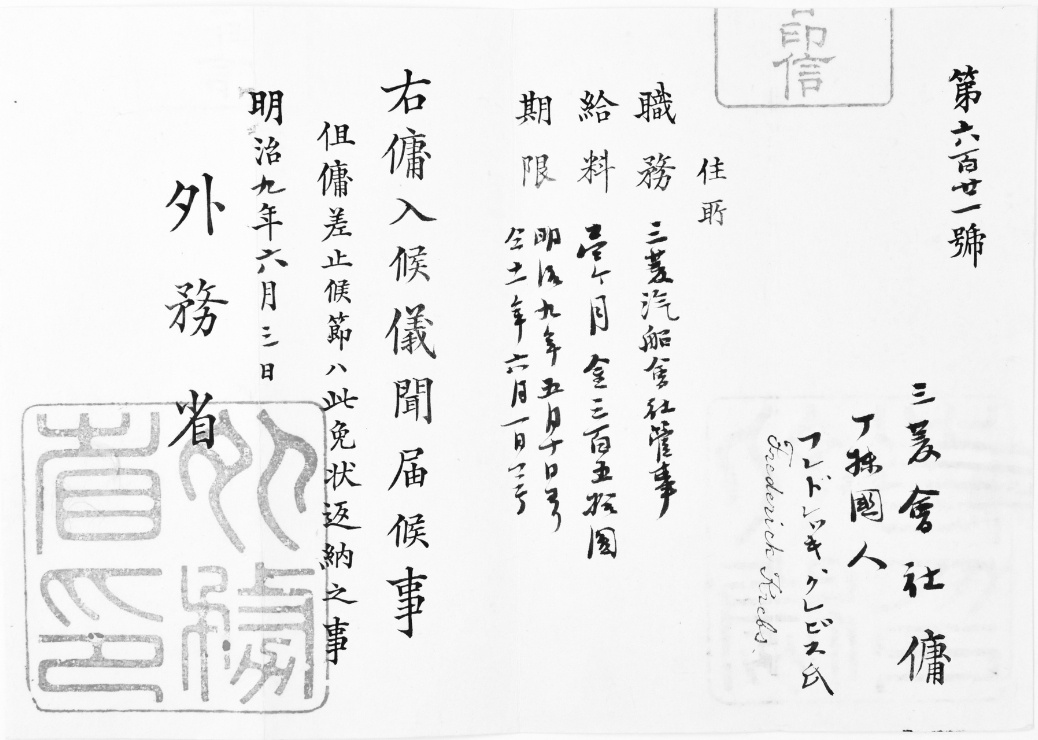 第六百廿一號
三菱會社傭
丁抹國人
フレドレッキグレビス氏
Frederick Krebs.
住所
職務 三菱汽船會社管事
給料 壱ケ月金三百五拾圓
期限 明治九年五月十日ゟ
仝十一年六月一日迠
右傭入候儀聞届候事
但傭差止候節ハ此免状返納之事
明治九年六月三日
外務省
外務省印
印信